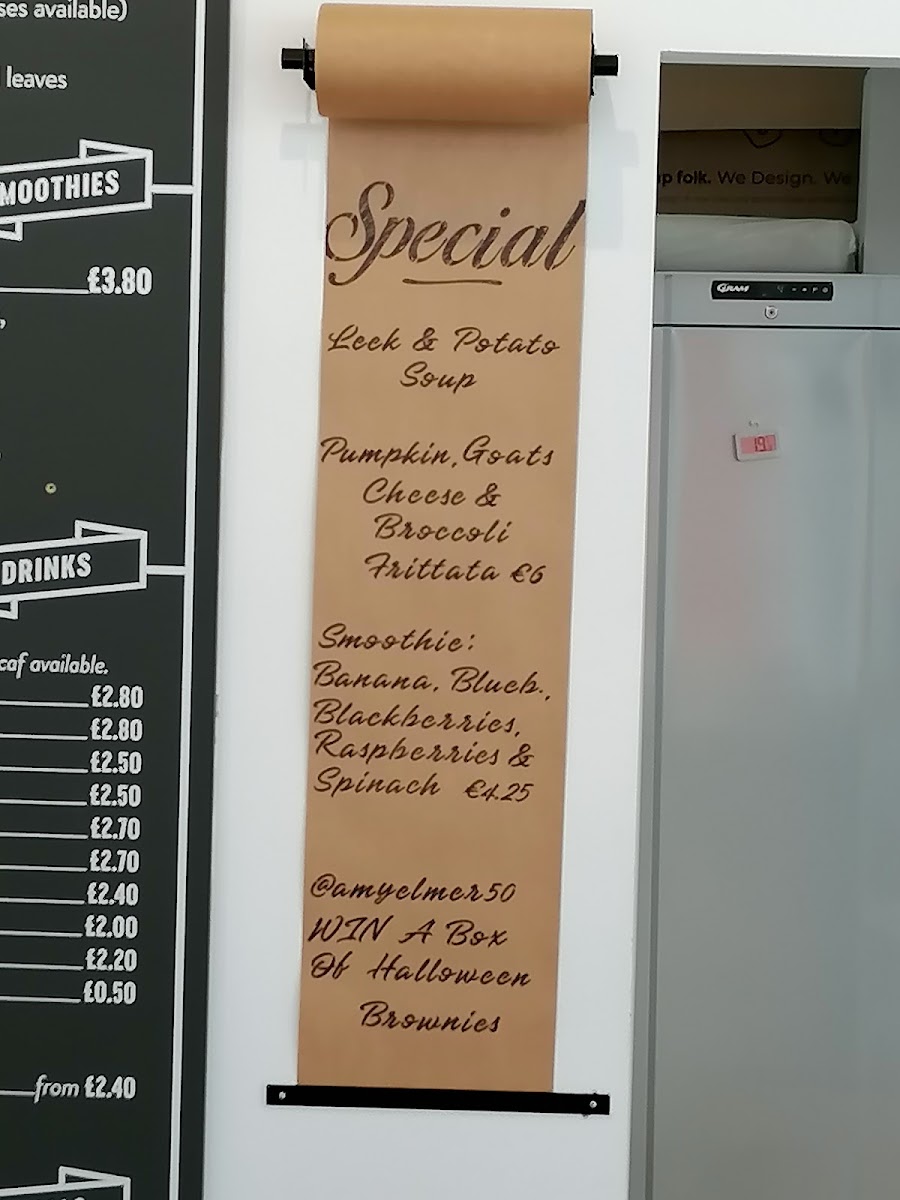 ses available)
leaves
MOOTHIES
£3.80
DRINKS
caf available.
£2.80
£2.80
£2.50
£2.50
£2.70
£2.70
£2.40
£2.00
£2.20
£0.50
from £2.40
Special
Leek & Potato
Soup
Pumpkin, Goats
Cheese &
Broccoli
Frittata €6
Smoothie:
Banana, Blueb.,
Blackberries,
Raspberries &
Spinach €4.25
@amyelmer50
WIN A Box
Of Halloween
Brownies
up folk. We Design. We
GRAM
19